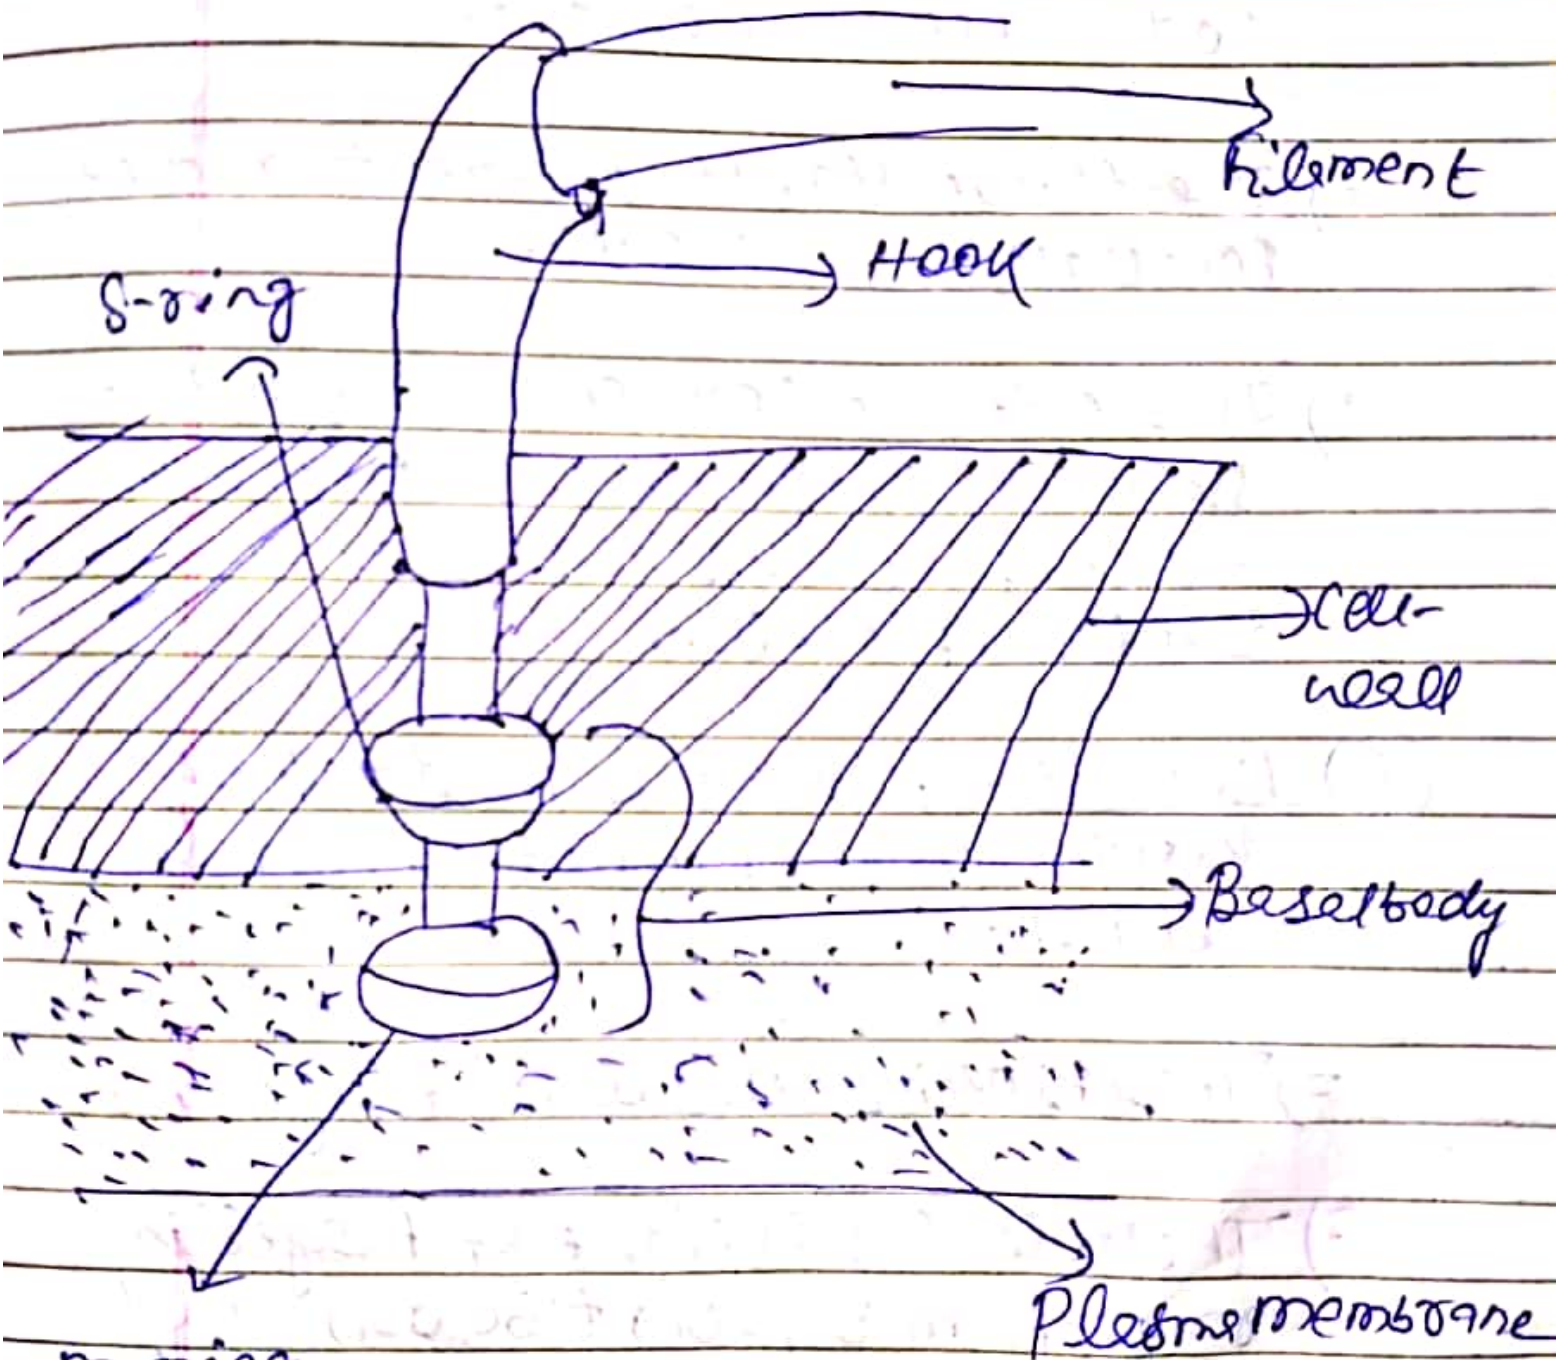 Filament
Hook
S-ring
Cell-
wall
Basal body
Plasma membrane